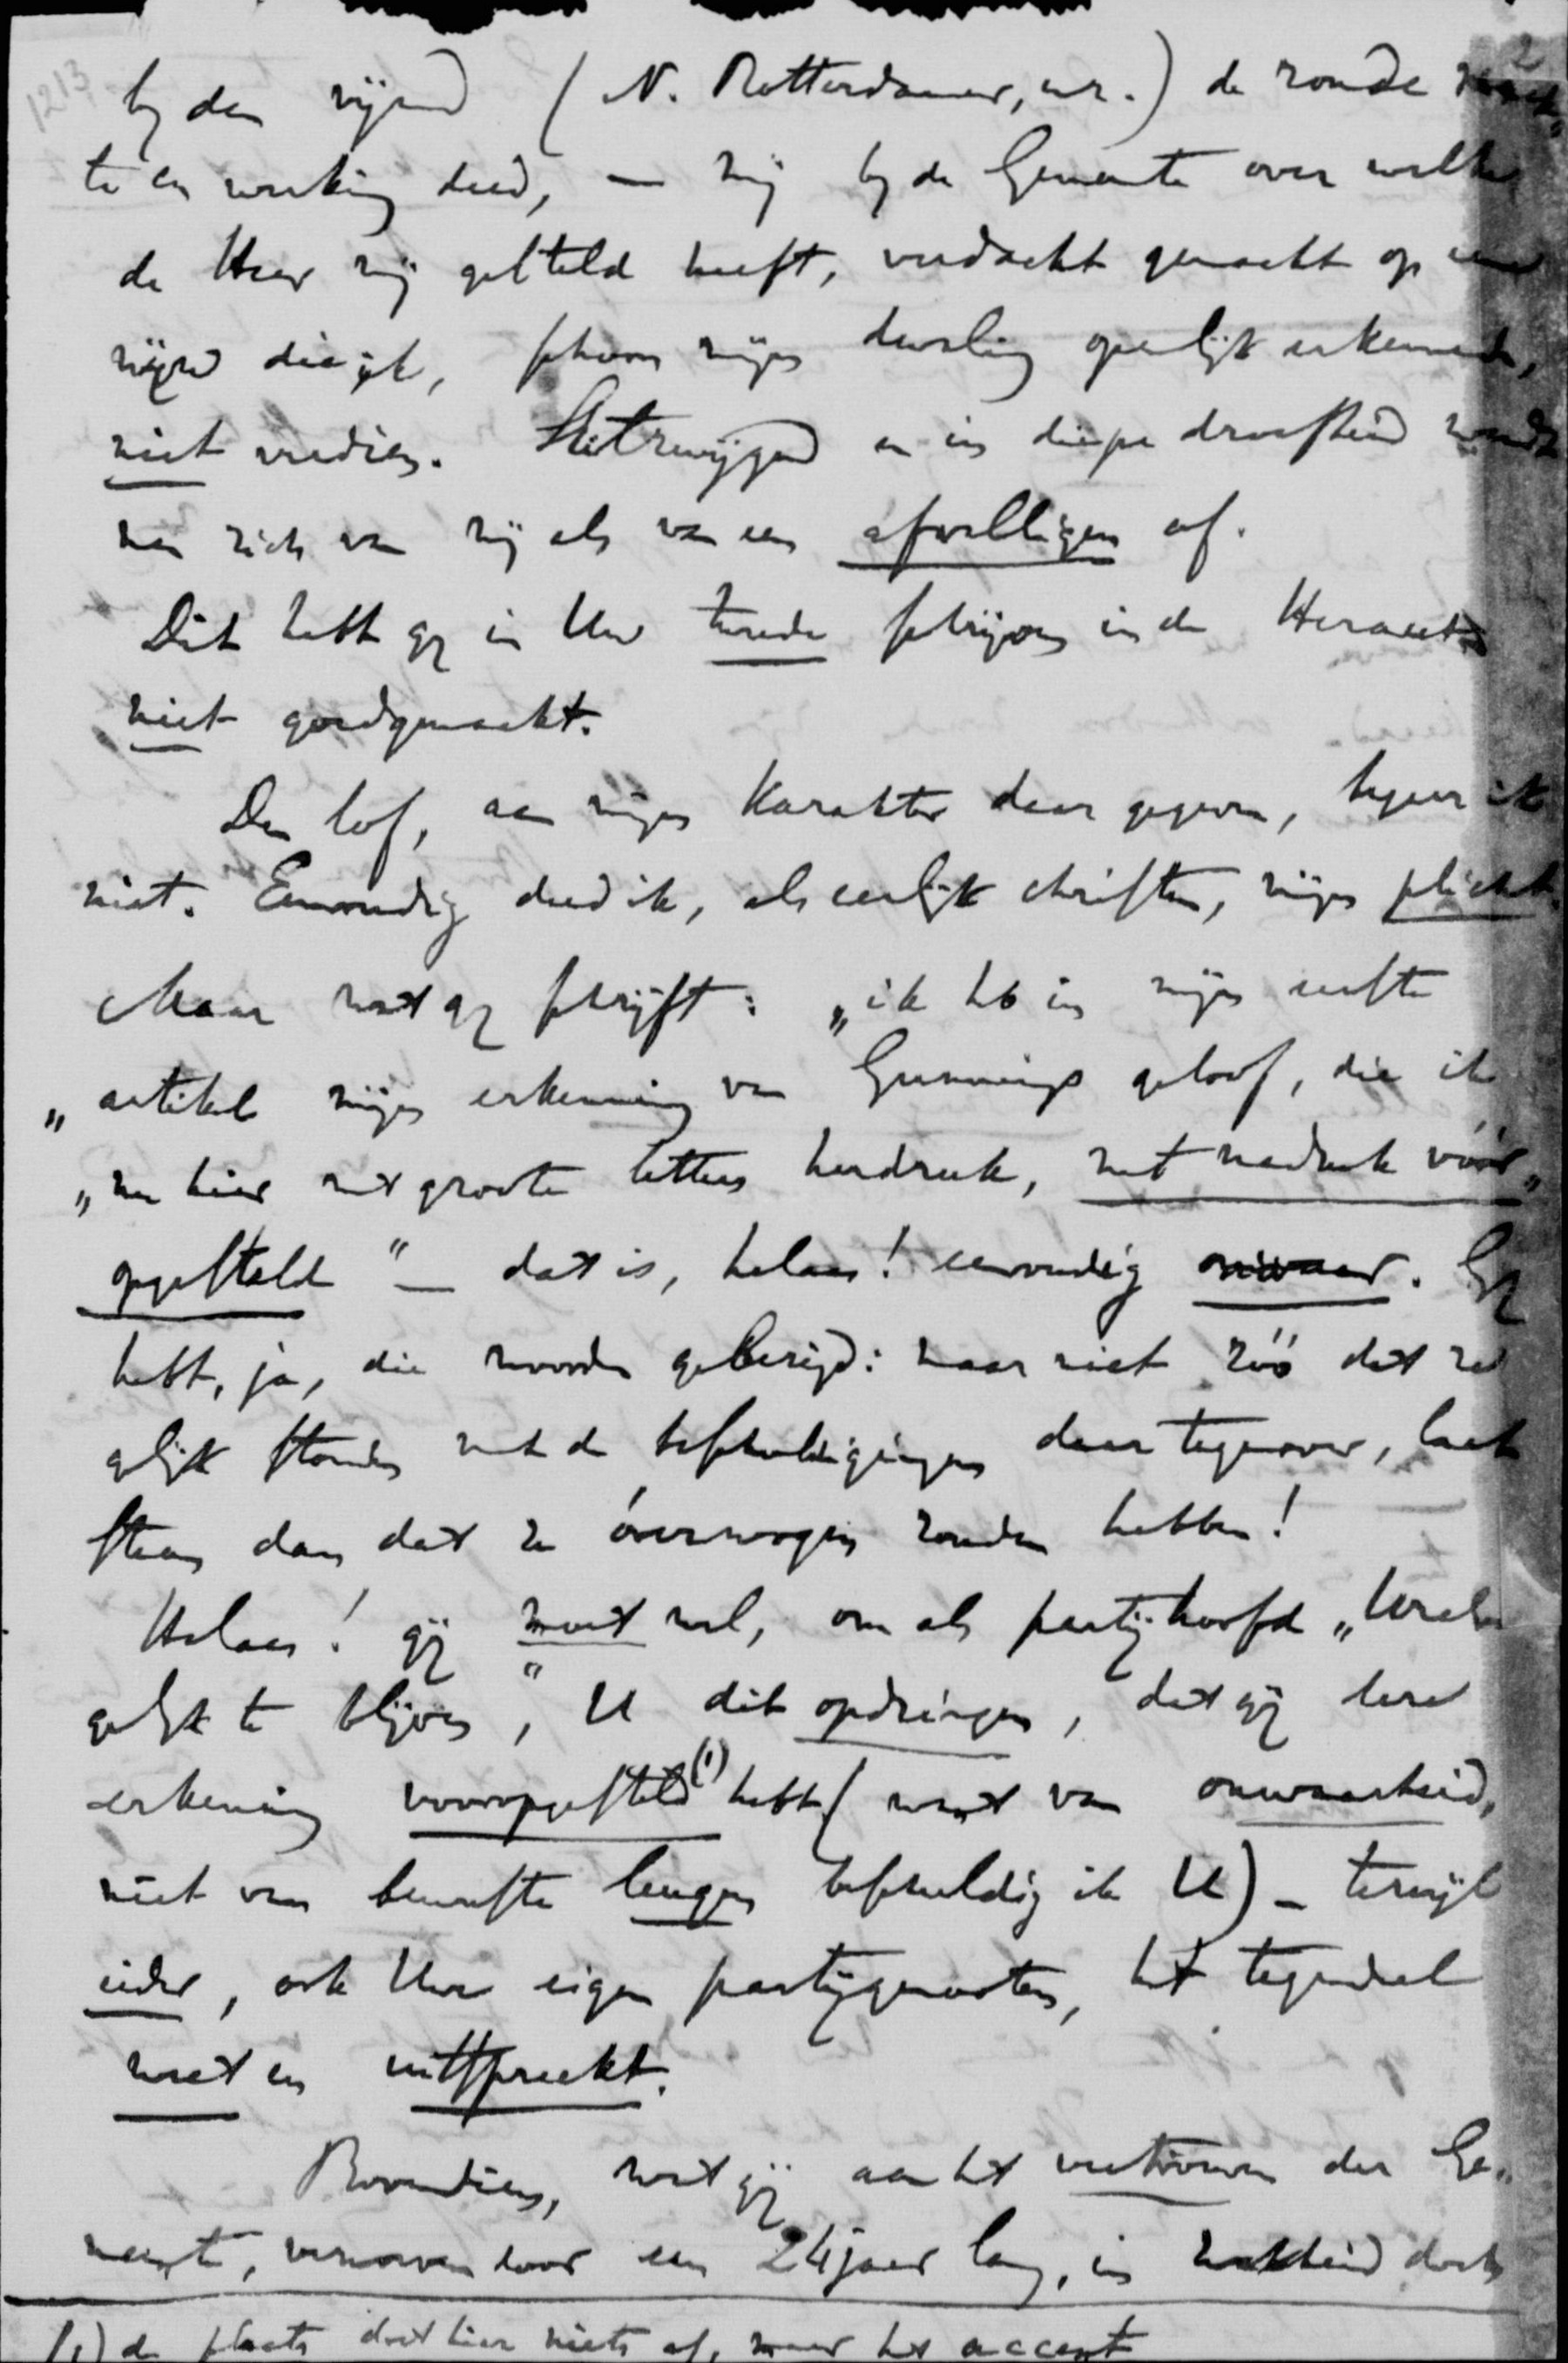 1213
2
bij den vijand (N. Rotterdammer, enz.) de ronde
te en werking deed, — mij bij de Gemeente over welke
de Heer mij gesteld heeft, verdacht gemaakt op eene
wijze die ik, schoon mijn dwaling openlijk erkennende,
niet verdien. Stilzwijgend en in diepe droefheid wendde
men zich van mij als van een afvalligen af.
Dit hebt gij in Uw tweede schrijven in de Heraut
niet goedgemaakt.
Den lof, aan mijn karakter daar gegeven, begeer ik
niet. Eenvoudig deed ik, als eerlijk christen, mijn plicht.
Maar wat gij schrijft: „ik heb in mijn eerste
„artikel mijn erkenning van Gunnings geloof, die ik
„nu hier met groote letters herdruk, met nadruk vóór„
opgesteld" — dat is, helaas! eenvoudig onwaar. Gij
hebt, ja, die woorden gebezigd: maar niet zóó dat ze
gelijk stonden met de beschuldigingen daar tegenover, laat
staan dan dat ze óverwogen zouden hebben!
Helaas! gij moet wel, om als partijhoofd „Uzelv
gelijk te blijven", U dit opdringen, dat gij deze
erkening vooropgesteld(1) hebt (want van onwaarheid,
niet van bewuste leugen beschuldig ik U) — terwijl
ieder, ook Uwe eigen partijgenooten, het tegendeel
weet en uitspreekt.
Bovendien, wat gij aan het vertrouwen der Ge„
meente, verworven door een 24 jaar lang, in zwakheid doch
(1) de plaats doet hier niets af, maar het accent